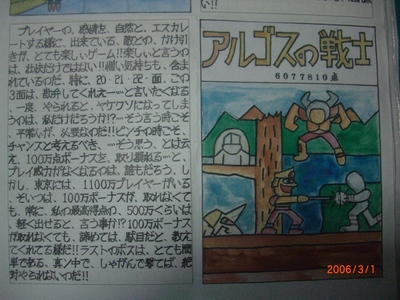 い!!
プレイヤーの、感情を、自然と、エスカレ
ートする様に、出来ている、敵との、かけ引
きが、とても楽しいゲーム!!楽しいと言うの
は、お世辞ではない!!憎い気持ちも、含ま
れているのだ。特に、20・21・22・面、この
3面は、勘弁してくれえ―…と言いたくなる
。一度、やられると、ヤケクソになってしま
うのは、私だけだろうか!?…そう言う時こそ
平常心が、必要なのだ!!ピンチの時こそ、
チャンスと考えるべき、…そう思う、とは云
え、100万点ボーナスを、取り損ねる…と、
プレイ威力がなくなるのは、誰もだろう。し
かし、東京には、1100万プレイヤーがいる
。そいつは、100万ボーナスが、取れなくて
も、常に、私の最高得点の、500万くらいは
、軽く出せると、言う事か!?100万ボーナス
が取れなくても、諦めては、駄目だと、教え
てくれてる様だ!!ラストのボスは、とても簡
単である、真ン中で、しゃがんで撃てば、絶
対やられないのだ!!
アルゴスの戦士
6077810点
2006/3/1